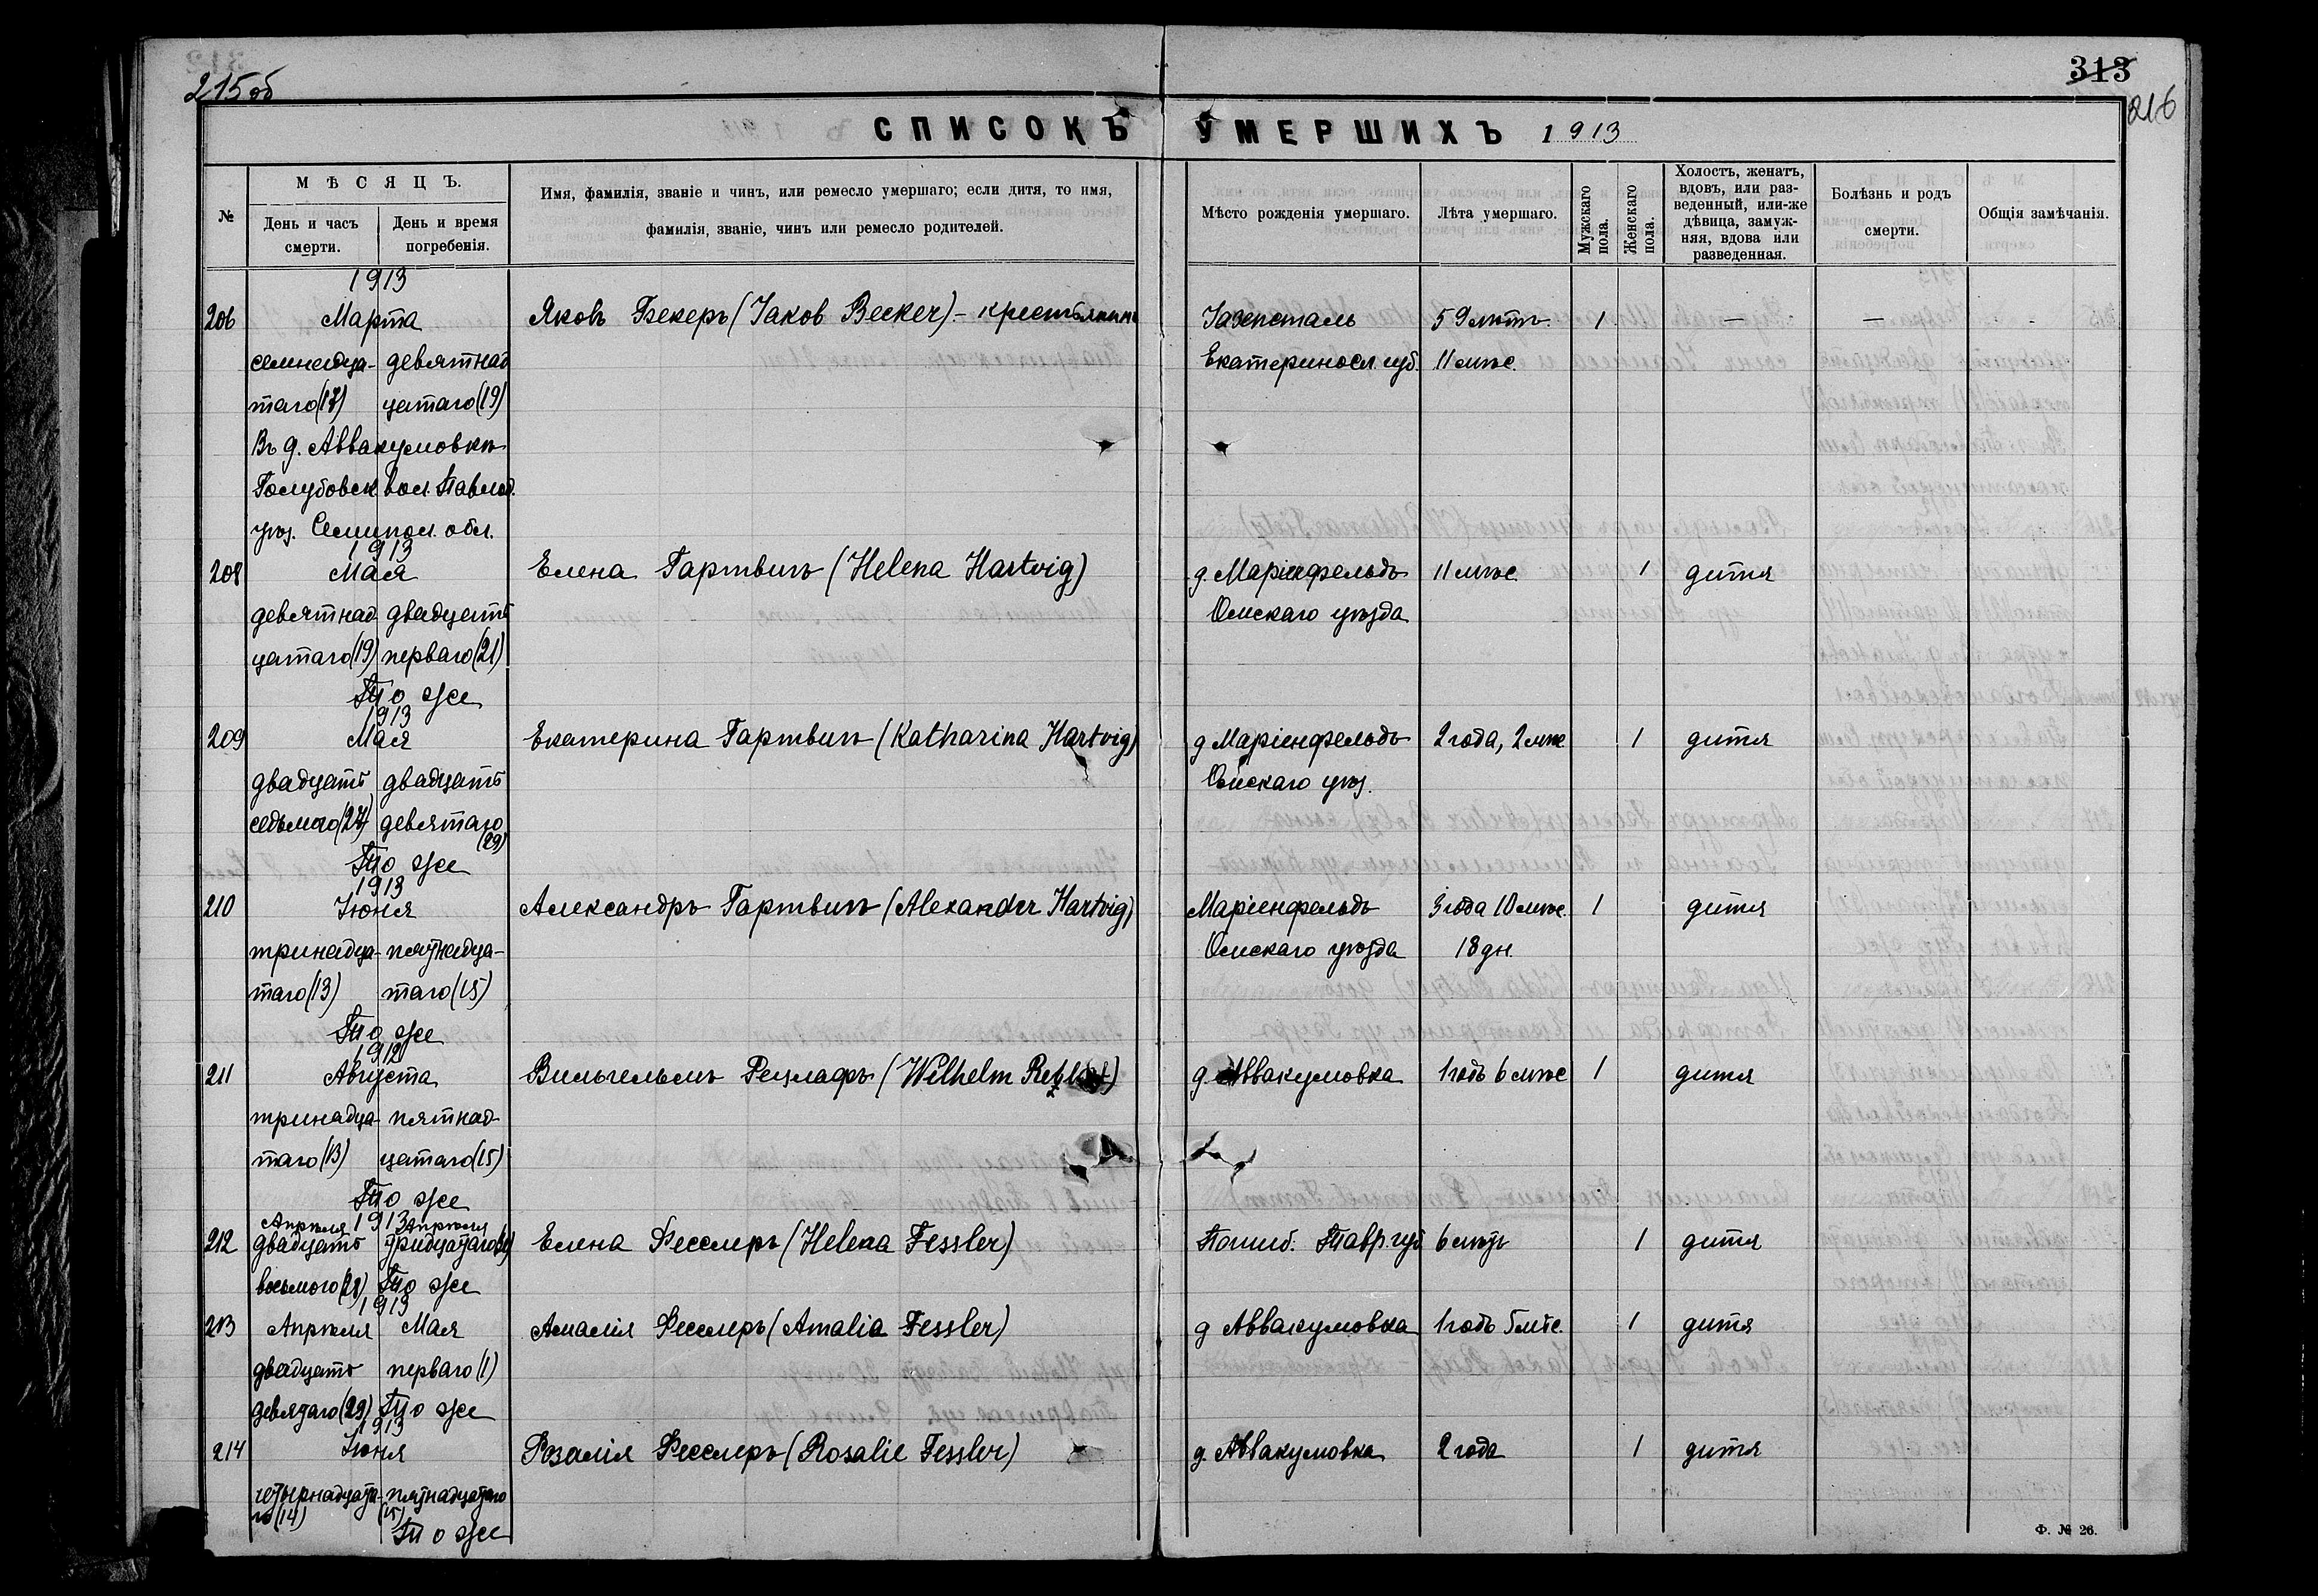 215об
313
216
СПИСОКЪ УМЕРШИХЪ 1913
№
МѢСЯЦЪ.
День и часъ смерти.
День и время погребенія.
Имя, фамилія, званіе и чинъ, или ремесло умершаго; если дитя, то имя, фамилія, званіе, чинъ или ремесло родителей.
Мѣсто рожденія умершаго.
Лѣта умершаго.
Мужскаго пола.
Женскаго пола.
Холостъ, женатъ, вдовъ, или раз-веденный, или-же дѣвица, замуж-няя, вдова или разведенная.
Болѣзнь и родъ смерти.
Общія замѣчанія.
1913
206 Марта Яковъ Бекеръ (Jакоb Becker) - крестьянинъ 59 лѣтъ. 1 — —
семнадца- девятнад Екатериносл. губ. 11 мѣс.
таго (17) цатаго (19)
Въ д. Аввакумовкѣ
Голубовск вол. Павлод.
уѣз. Семипол. обл.
1913
208 Мая Елена Гартвигъ (Helena Hartvig) д. Маріенфельдъ 11 мѣс. 1 дитя
девятнад двадцать Омскаго уѣзда
цатаго (19) перваго (21)
То же
1913
209 Мая Екатерина Гартвигъ (Katharina Hartvig) д Маріенфельдъ 2 года, 2 мѣс 1 дитя
двадцать двадцать Омскаго уѣз.
седьмого (27) девятаго (29)
То же
1913
210 Іюня Александръ Гартвигъ (Alexander Hartvig) Маріенфельдъ 3 года 10 мѣс. 1 дитя
тринадца- пятнадца- Омскаго уѣзда 18 дн.
таго (13) таго (15)
То же
1912
211 Августа Вильгельмъ Рецлафъ (Wilhelm д. Аввакумовка 1 годъ 6 мѣс 1 дитя
тринадца- пятнад
таго (13) цатаго (15)
То же
Апрѣля 1913 Апрѣля
212 двадцать тридцатаго (30) Елена Фесслеръ (Helena Fessler) Тавр. губ 6 лѣтъ 1 дитя
восьмого (28) То же
1913
213 Апрѣля Мая Амалія Фесслеръ (Amalia Fessler) д Аввакумовка 1 годъ 5 мѣс. 1 дитя
двадцать перваго (1)
девятаго (29) То же
1913
214 Іюня Розалія Фесслеръ (Rosalie Fessler) д. Аввакумовка 2 года 1 дитя
четырнадцата- пятнадцатаго
го (14) (15)
То же
Ф. № 26.